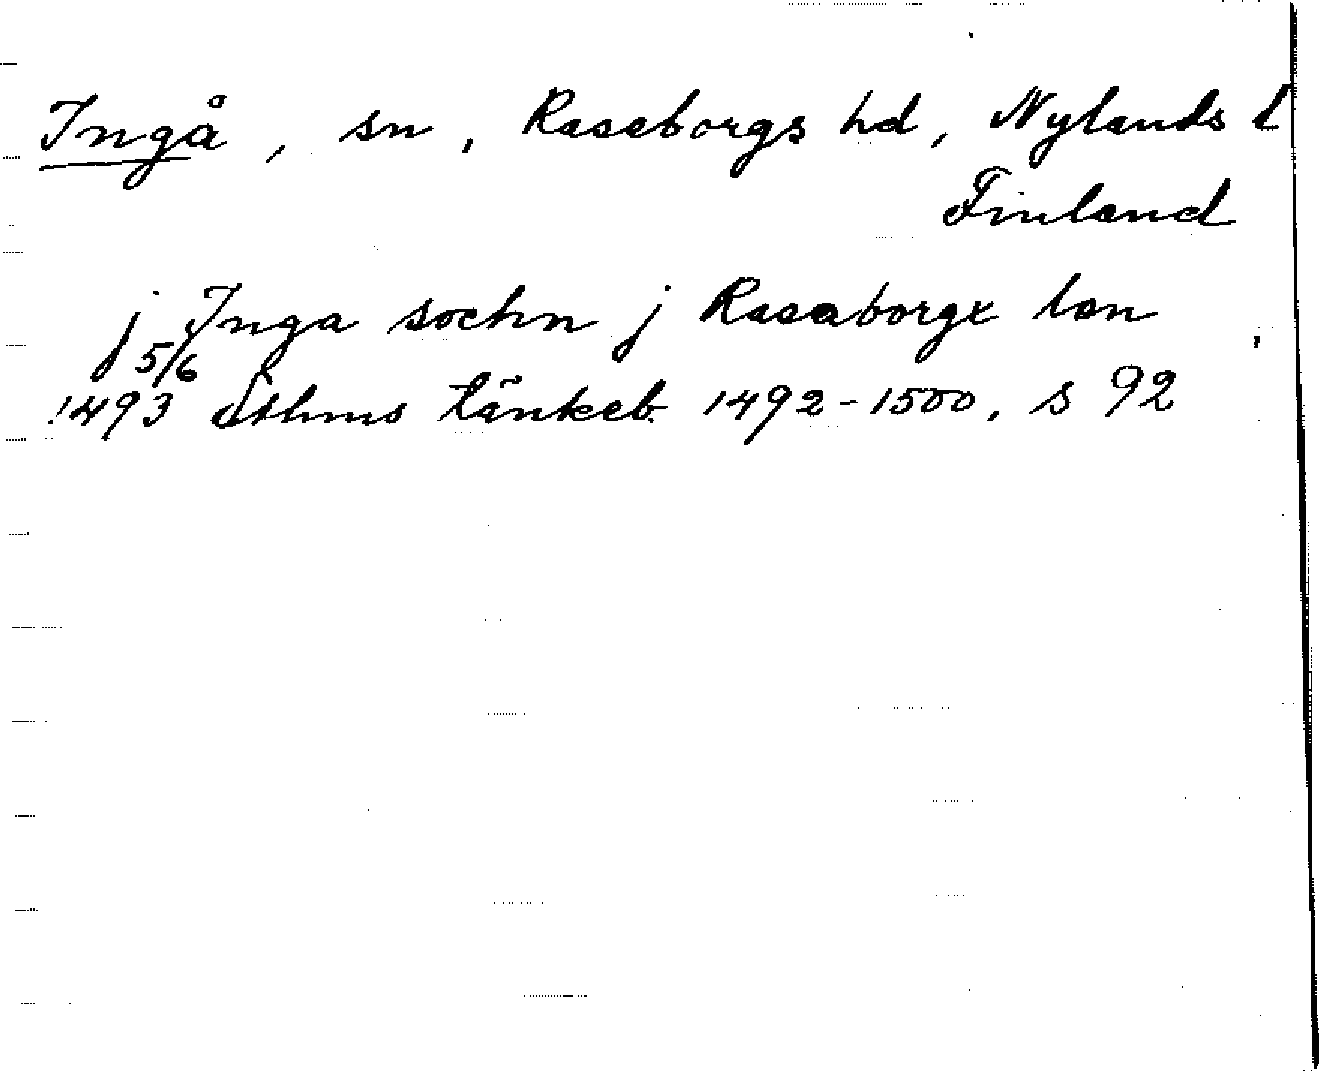 Ingå, sn, Raseborgs hd, Nylands l
Finland
j Inga sochn j Rasaborgx lan
5/6
1493 Sthms tänkeb 1492-1500, s 92